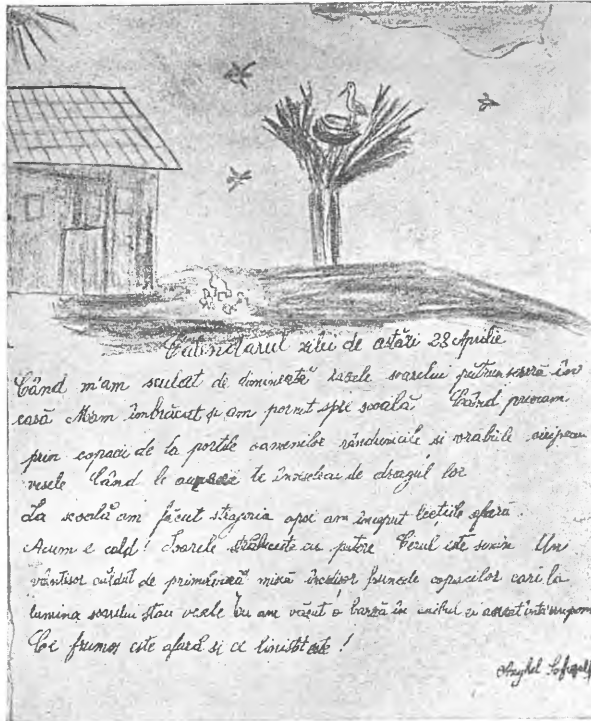 Calendarul zilei de astări 28 Aprilie
Când m'am sculat de dimineață razele soarelui pătrunseră în
casă M'am îmbrăcat și am pornit spre școală Când priveam
prin copaci de la porțile oamenilor rândunicile si vrabiile ciripeau
vesele Când le auzeai te înveseleai de dragul lor
La școală am făcut strajeria apoi am început lecțiile afară.
Acum e cald! Soarele străluceste cu putere Cerul iste senin Un
vântisor căldut de primăvară miscă încetisor frunzele copacilor cari la
lumina soarului stau vesele Eu am văzut o barză în cuibul ei asezat într'un pom
Ce frumos este afară si ce liniste este!
Anghel